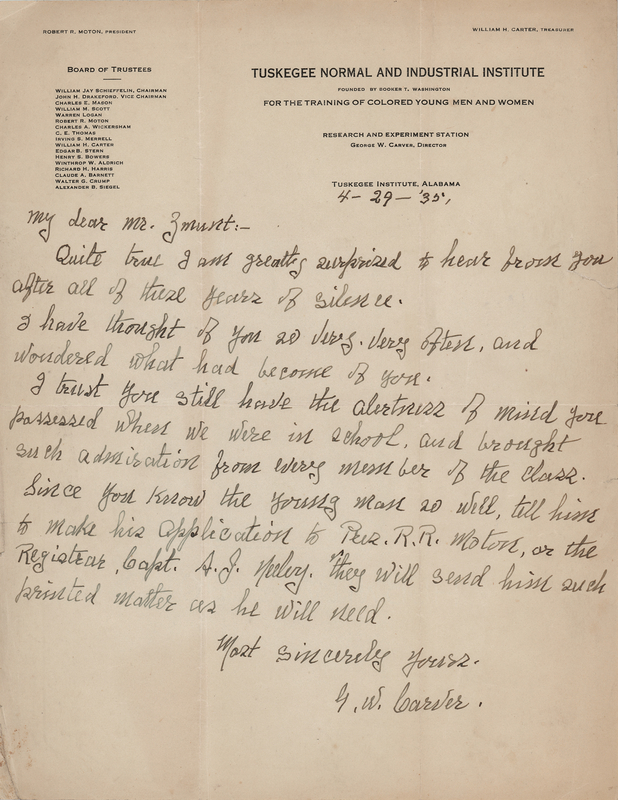 ROBERT R. MOTON, PRESIDENT
WILLIAM H. CARTER, TREASURER
BOARD OF TRUSTEES
WILLIAM JAY SCHIEFFELIN, CHAIRMAN
JOHN H. DRAKEFORD, VICE CHAIRMAN
CHARLES E. MASON
WILLIAM M. SCOTT
WARREN LOGAN
ROBERT R. MOTON
CHARLES A. WICKERSHAM
C. E. THOMAS
IRVING S. MERRELL
WILLIAM H. CARTER
EDGAR B. STERN
HENRY S. BOWERS
WINTHROP W. ALDRICH
RICHARD H. HARRIS
CLAUDE A. BARNETT
WALTER G. CRUMP
ALEXANDER B. SIEGEL
TUSKEGEE NORMAL AND INDUSTRIAL INSTITUTE
FOUNDED BY BOOKER T. WASHINGTON
FOR THE TRAINING OF COLORED YOUNG MEN AND WOMEN
RESEARCH AND EXPERIMENT STATION
GEORGE W. CARVER, DIRECTOR
TUSKEGEE INSTITUTE, ALABAMA
4-29-'35,
My dear Mr. Zmunt:-
Quite true I am greatly surprized to hear from you
after all of these years of silence.
I have thought of you so very, very often, and
wondered what had become of you.
I trust you still have the alertness of mind you
possessed when we were in school, and brought
such admiration from every member of the class.
Since you know the young man so well, tell him
to make his application to Pres. R.R. Moton, or the
Registrar, Capt. A.J. Neeley. They will send him such
printed matter as he will need.
Most sincerely yours.
G. W. Carver.